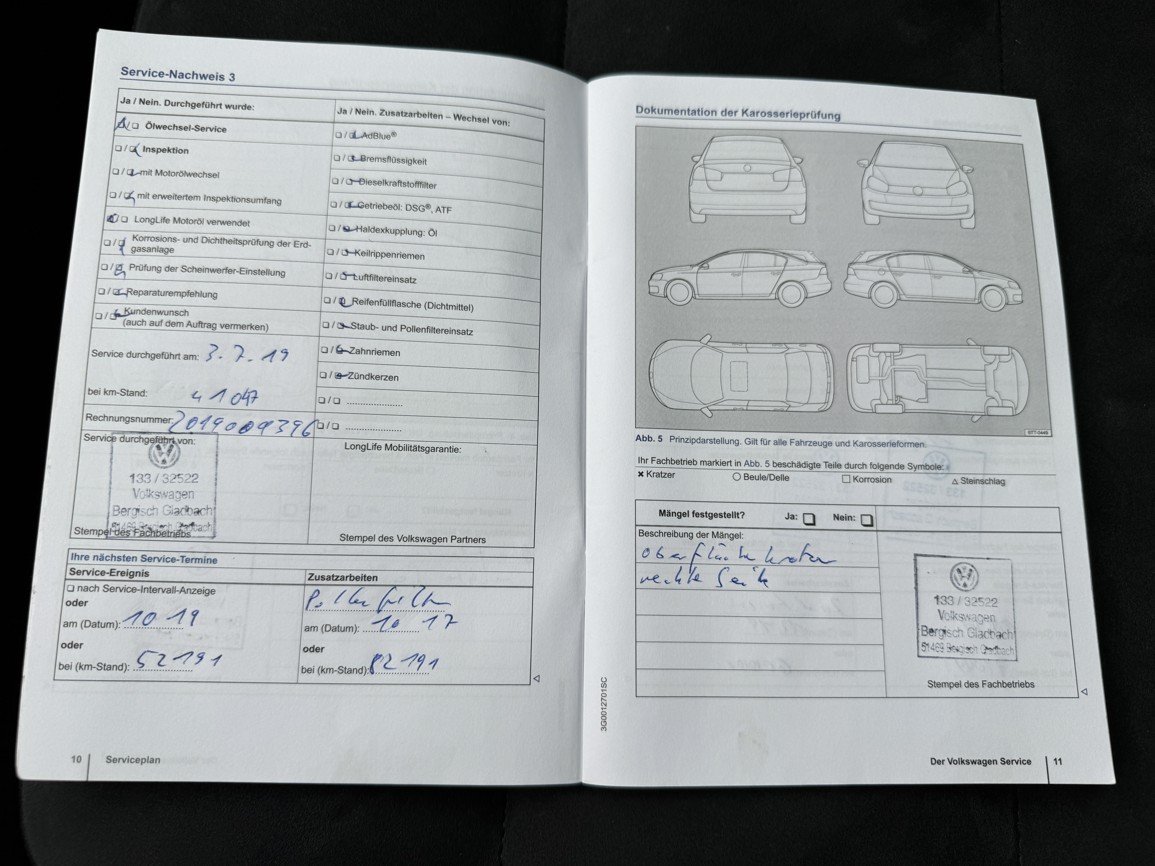 Service-Nachweis 3
Ja / Nein. Durchgeführt wurde:
Ölwechsel-Service
Inspektion
mit Motorölwechsel
mit erweitertem Inspektionsumfang
LongLife Motoröl verwendet
Korrosions- und Dichtheitsprüfung der Erd-
gasanlage
Prüfung der Scheinwerfer-Einstellung
Reparaturempfehlung
Kundenwunsch
(auch auf dem Auftrag vermerken)
Service durchgeführt am: 3.7.19
bei km-Stand: 41047
Rechnungsnummer: 2019009396
Service durchgeführt von:
133 / 32522
Volkswagen
Bergisch Gladbach
51469 Bergisch Gladbach
Stempel des Fachbetriebs
Ja / Nein. Zusatzarbeiten – Wechsel von:
AdBlue®
Bremsflüssigkeit
Dieselkraftstofffilter
Getriebeöl: DSG®, ATF
Haldexkupplung: Öl
Keilrippenriemen
Luftfiltereinsatz
Reifenfüllflasche (Dichtmittel)
Staub- und Pollenfiltereinsatz
Zahnriemen
Zündkerzen
LongLife Mobilitätsgarantie:
Stempel des Volkswagen Partners
Ihre nächsten Service-Termine
Service-Ereignis
nach Service-Intervall-Anzeige
oder
am (Datum): 10 19
oder
bei (km-Stand): 52191
Zusatzarbeiten
Pollenfilter
am (Datum): 10 17
oder
bei (km-Stand): 82191
10 Serviceplan
Dokumentation der Karosserieprüfung
Abb. 5 Prinzipdarstellung. Gilt für alle Fahrzeuge und Karosserieformen.
Ihr Fachbetrieb markiert in Abb. 5 beschädigte Teile durch folgende Symbole:
Kratzer Beule/Delle Korrosion Steinschlag
Mängel festgestellt? Ja: Nein:
Beschreibung der Mängel:
rechte Seite
133 / 32522
Volkswagen
Bergisch Gladbach
51469 Bergisch Gladbach
Stempel des Fachbetriebs
3G0012701SC
Der Volkswagen Service 11